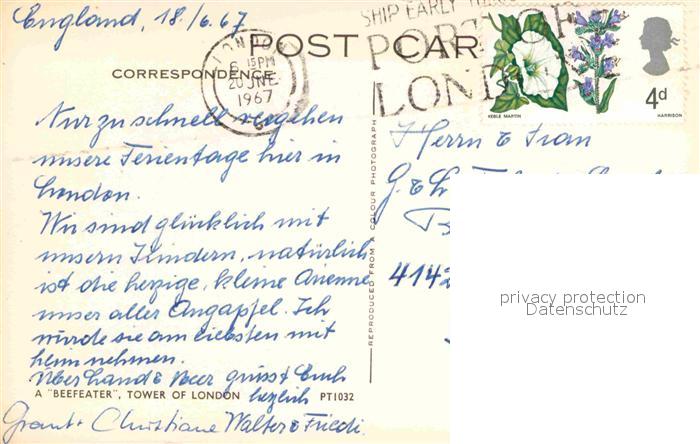 England, 18./6.67
SHIP EARLY
PORT OF
LONDON
LONDON
6 15PM
20 JNE
1967
POST CAR
CORRESPONDENCE
KEBLE MARTIN
4d
HARRISON
Nur zu schnell vergehen
unsere Ferientage hier in
London.
Wir sind glücklich mit
unsern Kindern, natürlich
ist die herzige, kleine Arienne
unser aller Augapfel. Ich
würde sie am liebsten mit
heim nehmen.
Über Land & Meer grüsst Euch
herzlich
A "BEEFEATER", TOWER OF LONDON PT1032
Grant + Christiane Walter & Friedi.
REPRODUCED FROM A COLOUR PHOTOGRAPH
Herrn & Frau
G. &
4142
privacy protection
Datenschutz